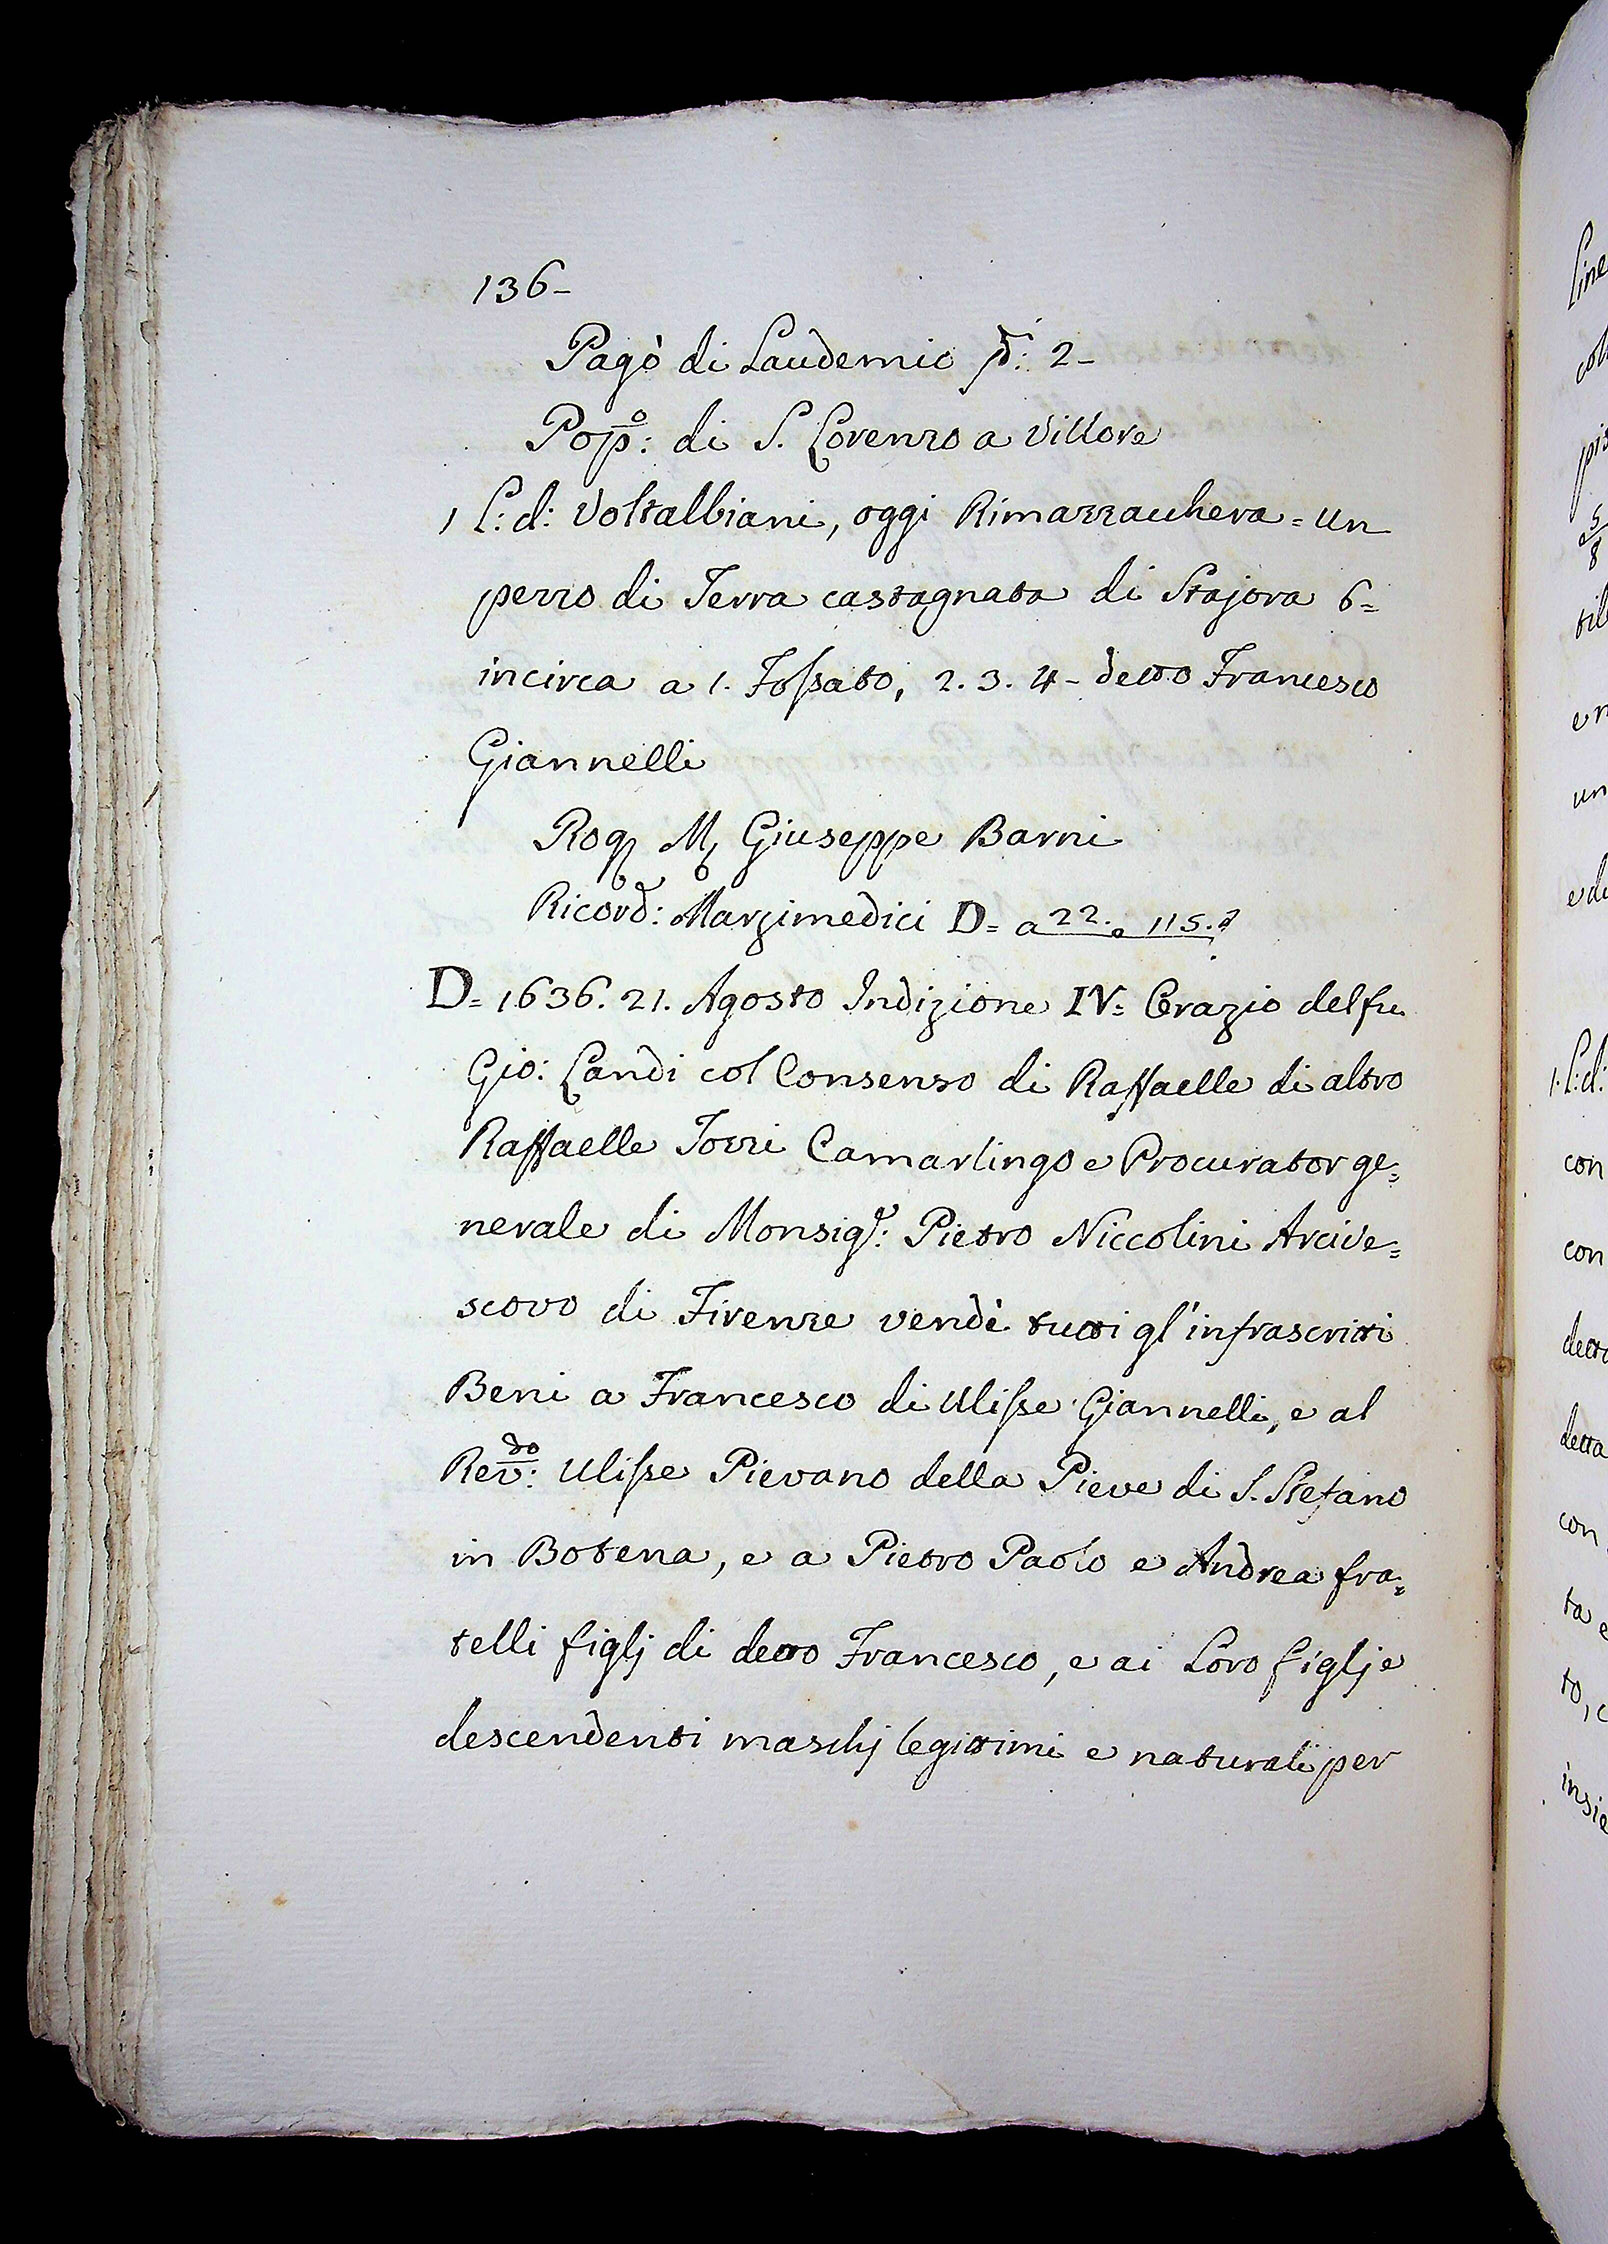 136-
Pagò di Laudemio ẟ: 2-
Pop.º: di S. Lorenzo a Villore
1 L: d: Voltalbiani, oggi Rimazzacchera = un
pezzo di Terra castagnata di Stajora 6=
incirca a 1. Foſsato, 2. 3. 4- detto Francesco
Giannelli
Rog. M. Giuseppe Barni
Ricord: Marzimedici D= a 22. e 115.
D= 1636. 21. Agosto Indizione IV= Orazio del fu
Gio: Landi col Consenso di Raffaelle di altro
Raffaelle Torri Camarlingo e Procurator ge=
nerale di Monsig.r: Pietro Niccolini Arcive=
scovo di Firenze vendè tutti gl'infrascritti
Beni a Francesco di Uliſse Giannelli, e al
Rev.do: Uliſse Pievano della Pieve di S. Stefano
in Botena, e a Pietro Paolo e Andrea fra=
telli figlj di detto Francesco, e ai Loro figlj e
descendenti maschj legittimi e naturali per